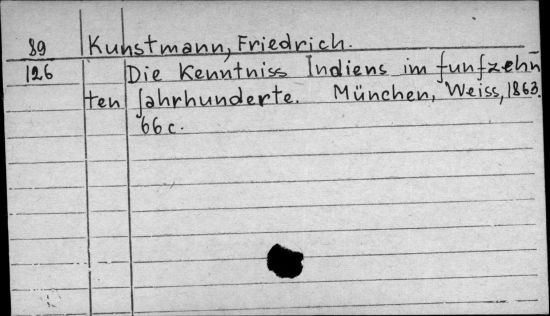 89 Kunstmann, Friedrich.
126 Die Kenntniss Indiens im funfzehn
ten Jahrhunderte. München, Weiss, 1863.
66 c.